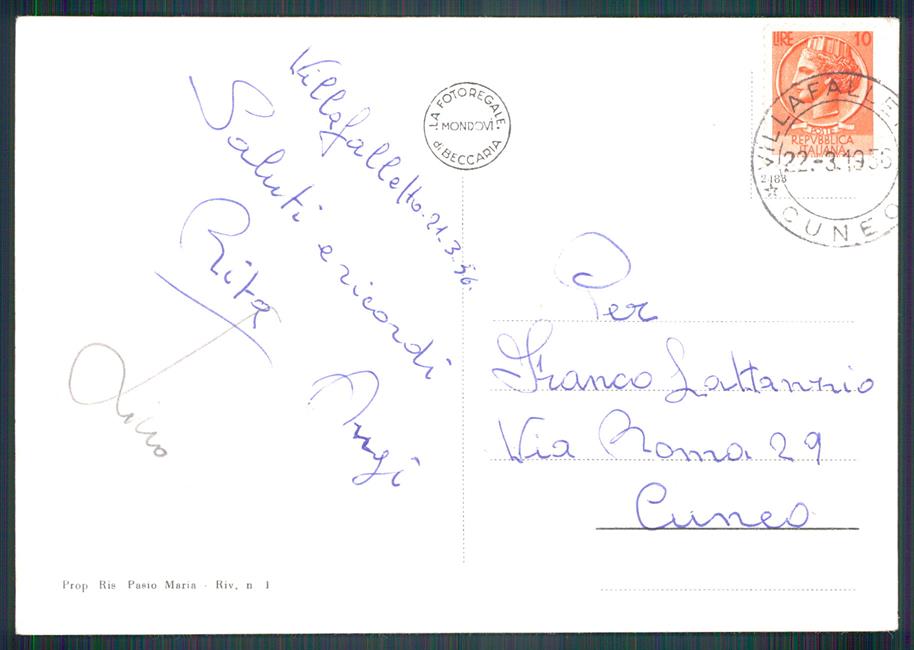 Villafalletto. 21.3.56.
Saluti e ricordi
Rita
Angi
Lino
LA FOTOREGALE
MONDOVÌ
di BECCARIA
LIRE 10
POSTE
REPVBBLICA
ITALIANA
VILLAFALLE
22.-3.1956
2188
CUNEO
Per
Franco Lattanzio
Via Roma 29
Cuneo
Prop Ris Pasio Maria - Riv. n 1